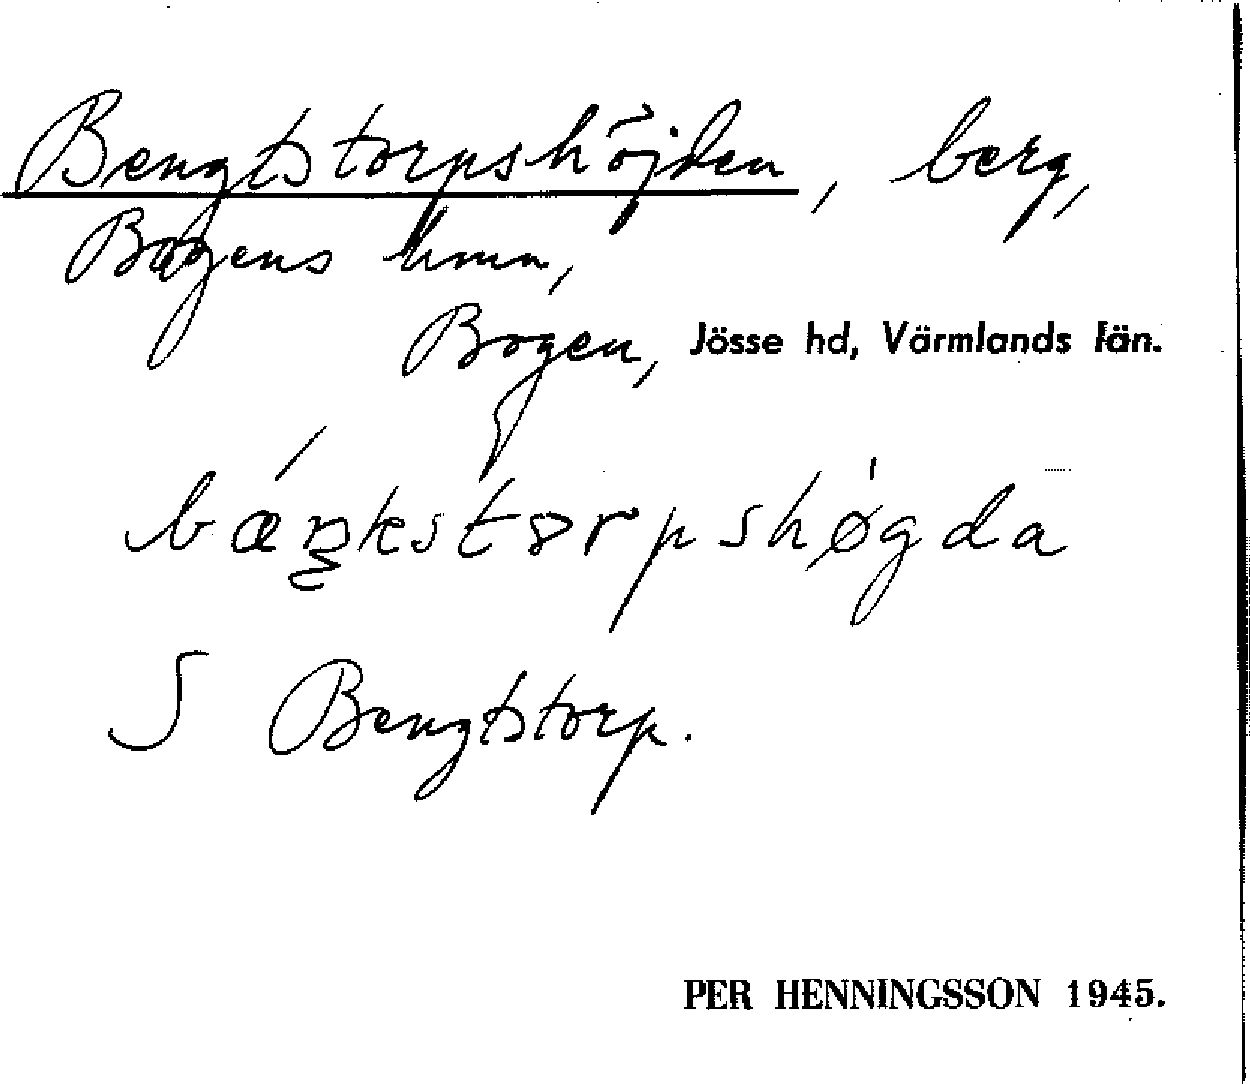 Bengtstorpshöjden, berg,
Bogens hmn,
Bogen, Jösse hd, Värmlands län.
bæŋkstorpshøgda
S Bengtstorp.
PER HENNINGSSON 1945.